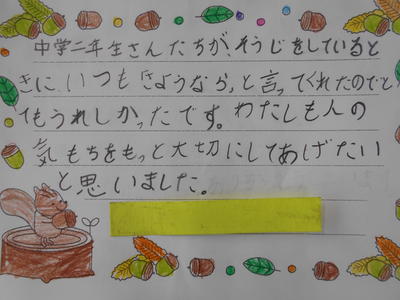 中学二年生さんたちが、そうじをしていると
きに、いつも「さようなら」と言ってくれたのでと
てもうれしかったです。わたしも人の
気もちをもっと大切にしてあげたい
と思いました。